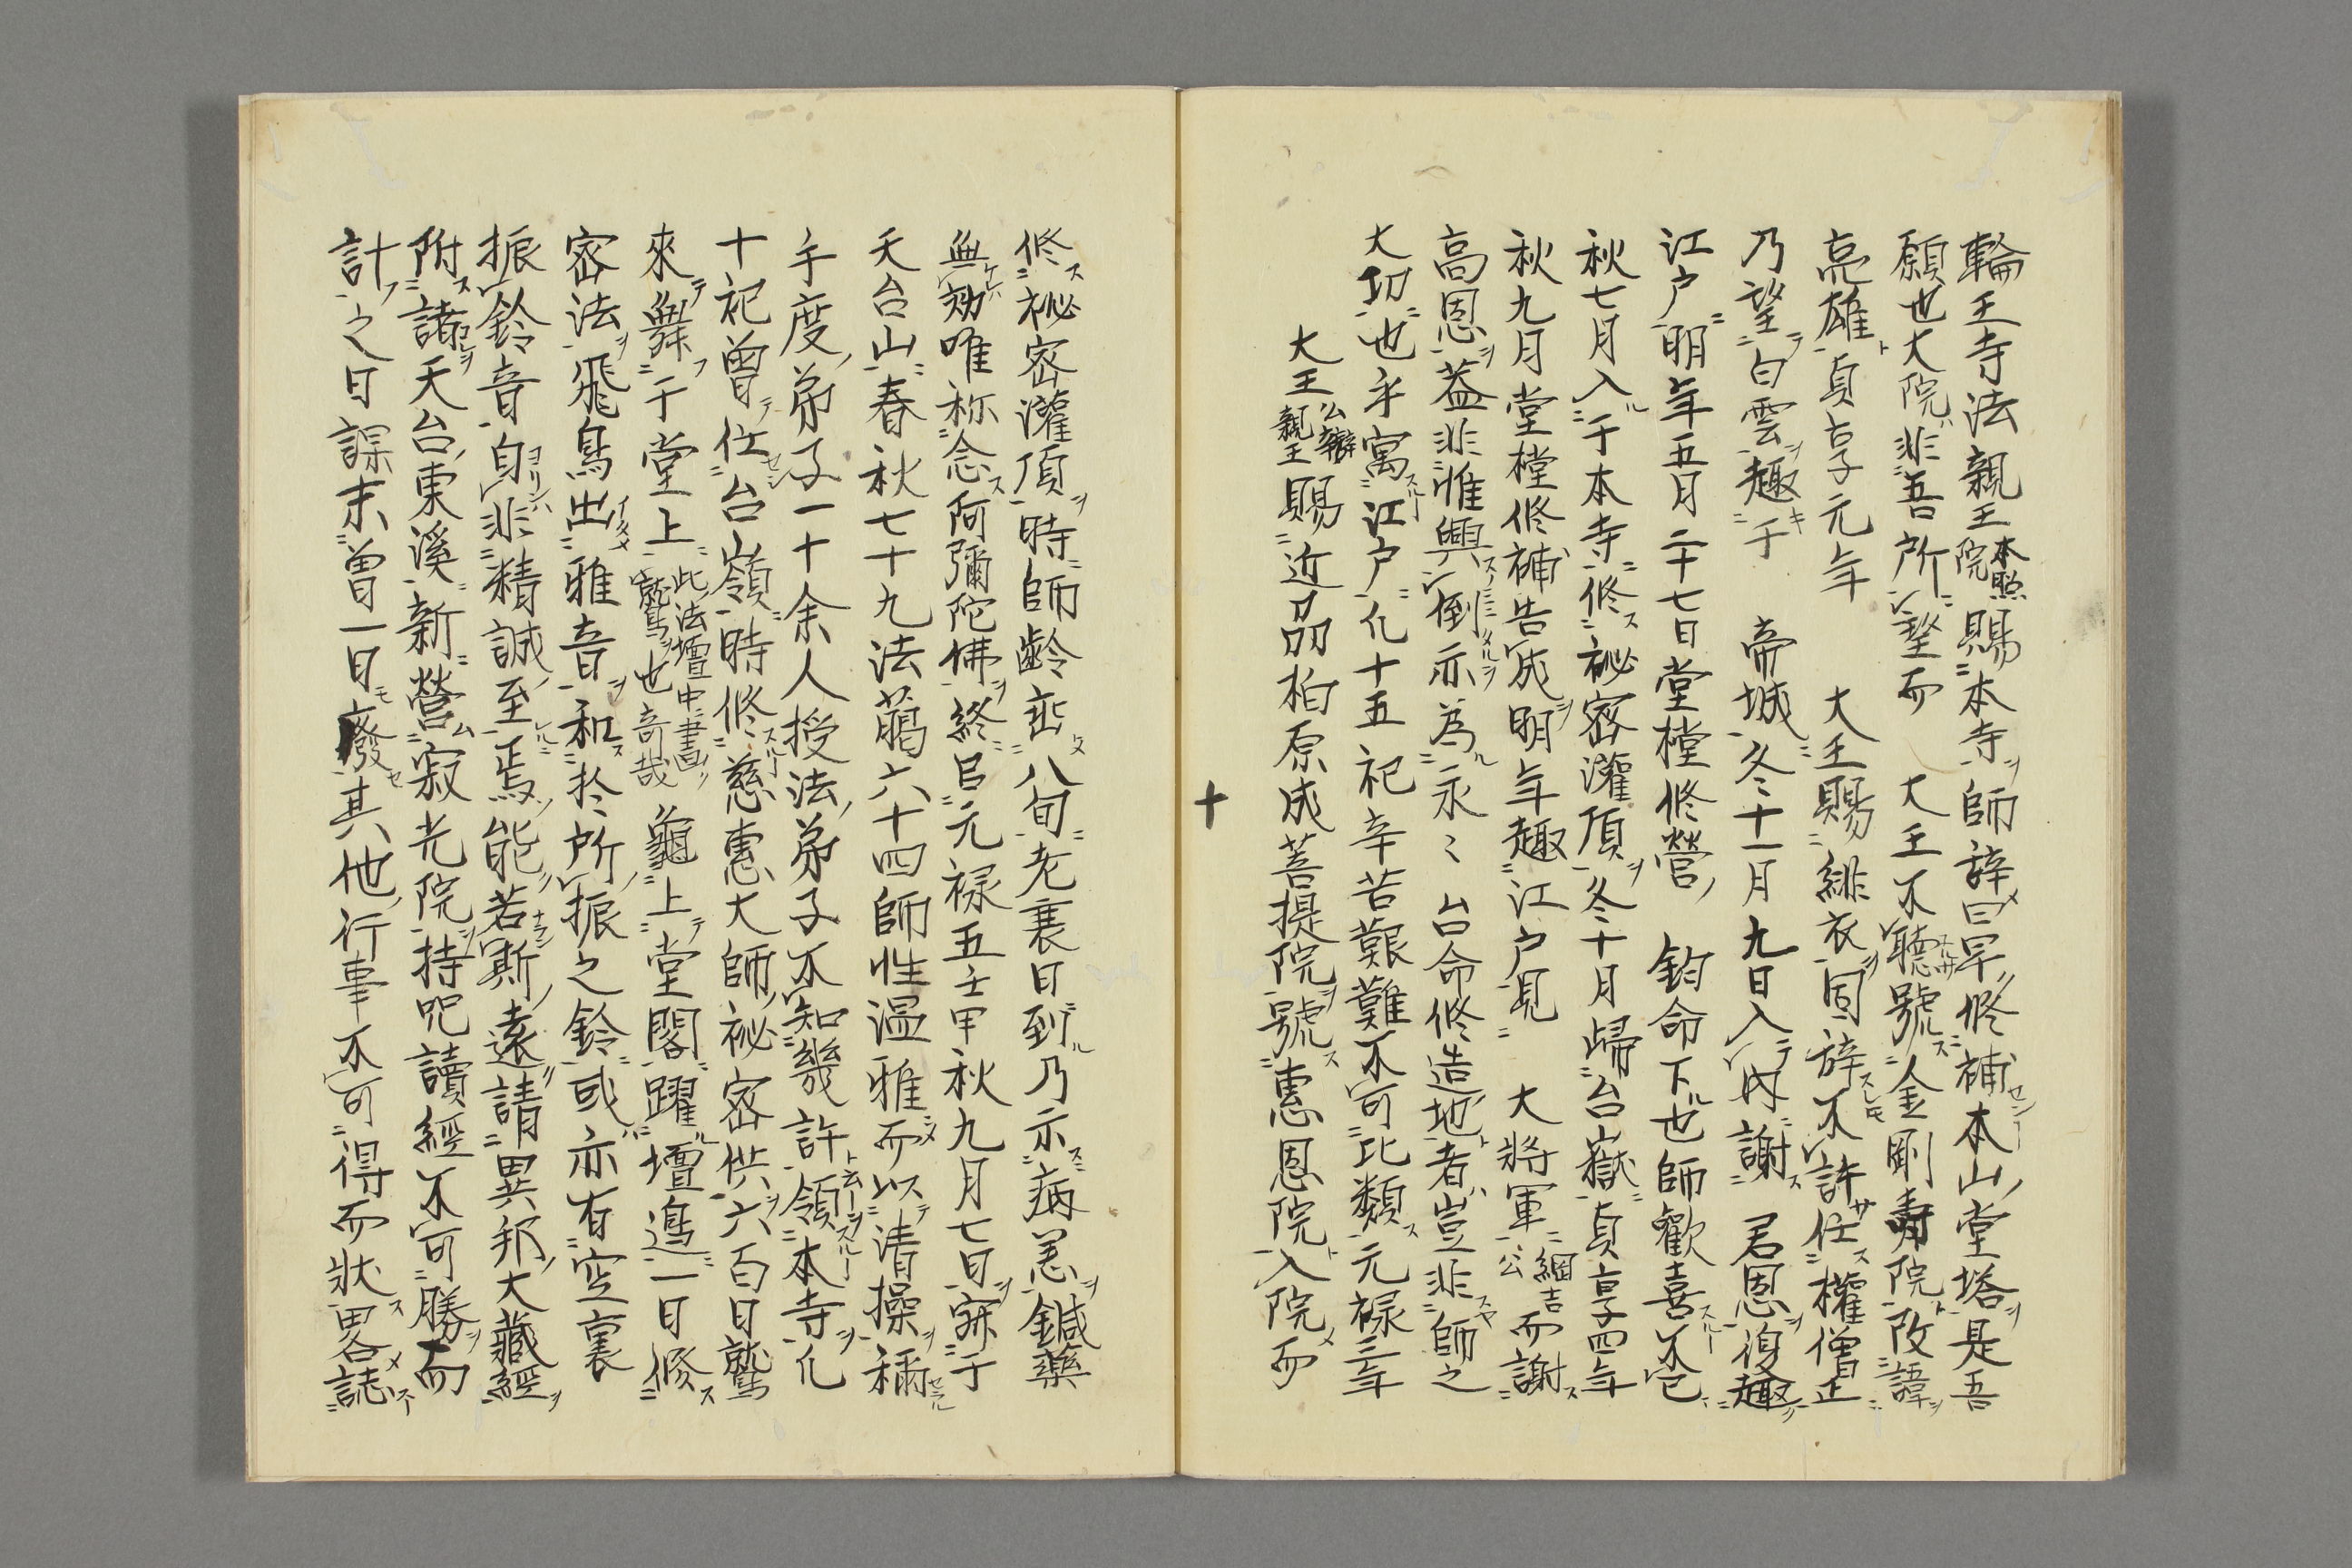 輪王寺法親王本照院賜本寺師辞曰早修補本山堂塔是吾
願也大院非吾所望而　大王不聴號金剛壽院改諱
亮雄貞享元年　　大王賜緋衣固辞不許任權僧正
乃望白雲趣于　帝城冬十一月九日入内謝　君恩復趣
江户明年五月二十七日堂樘修營　鈞命下也師歡喜不
秋七月入于本寺修祕密灌頂冬十月歸台嶽貞享四年
秋九月堂樘修補告成明年趣江户見　大將軍綱吉公而謝
高恩蓋非惟興倒亦為永〻　台命修造地者豈非師之
大功也乎寓江户化十五祀辛苦艱難不可比類元禄三年
大王公辯親王賜近品柏原成菩提院號惠恩院入院而
十
修祕密灌頂時師齡八旬老衰日到乃示病恙鍼藥
無効唯称念阿彌陀佛終焉元禄五壬申秋九月七日寂于
天台山春秋七十九法﨟六十四師性温雅而以清操稱
手度弟子一十余人授法弟子不知幾許領本寺化
十祀曽住台嶺時修慈惠大師祕密供六百日鷲
來舞于堂上此法壇中畫鷲也奇哉龜上堂閣躍壇邉一日修
密法飛鳥出雅音和於所振之鈴或亦有空裏
振鈴音自非精誠至焉能若斯遠請異邦大藏經
附諸天台東溪新營寂光院持咒讀經不可勝而
計之日課未曽一日廢其他行事不可得而狀畧誌